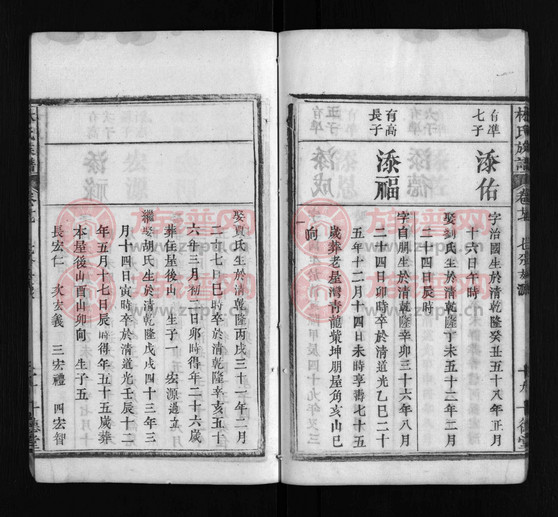 林氏族譜
有準
七子
添佑
字治國生於清乾隆癸丑五十八年正月
十六日午時
娶劉氏生於清乾隆丁未五十二年二月
二十四日辰時
有高
長子
添福
字自朋生於清乾隆辛卯三十六年八月
二十四日卯時卒於清道光乙巳二十
五年十二月十四日未時享壽七十五
歲葬老屋灣青龍葉坤朋屋角亥山巳
向
娶夏氏生於清乾隆丙戌三十一年二月
二十七日巳時卒於清乾隆辛亥五十
六年三月初二日卯時得年二十六歲
葬住屋後山 生子一 宏源過立
繼娶胡氏生於清乾隆戊戌四十三年三
月十四日寅時卒於清道光壬辰十二
年五月十七日辰時得年五十五歲葬
本屋後山酉山卯向 生子五
長宏仁 次宏義 三宏禮 四宏智
族谱网
族谱网